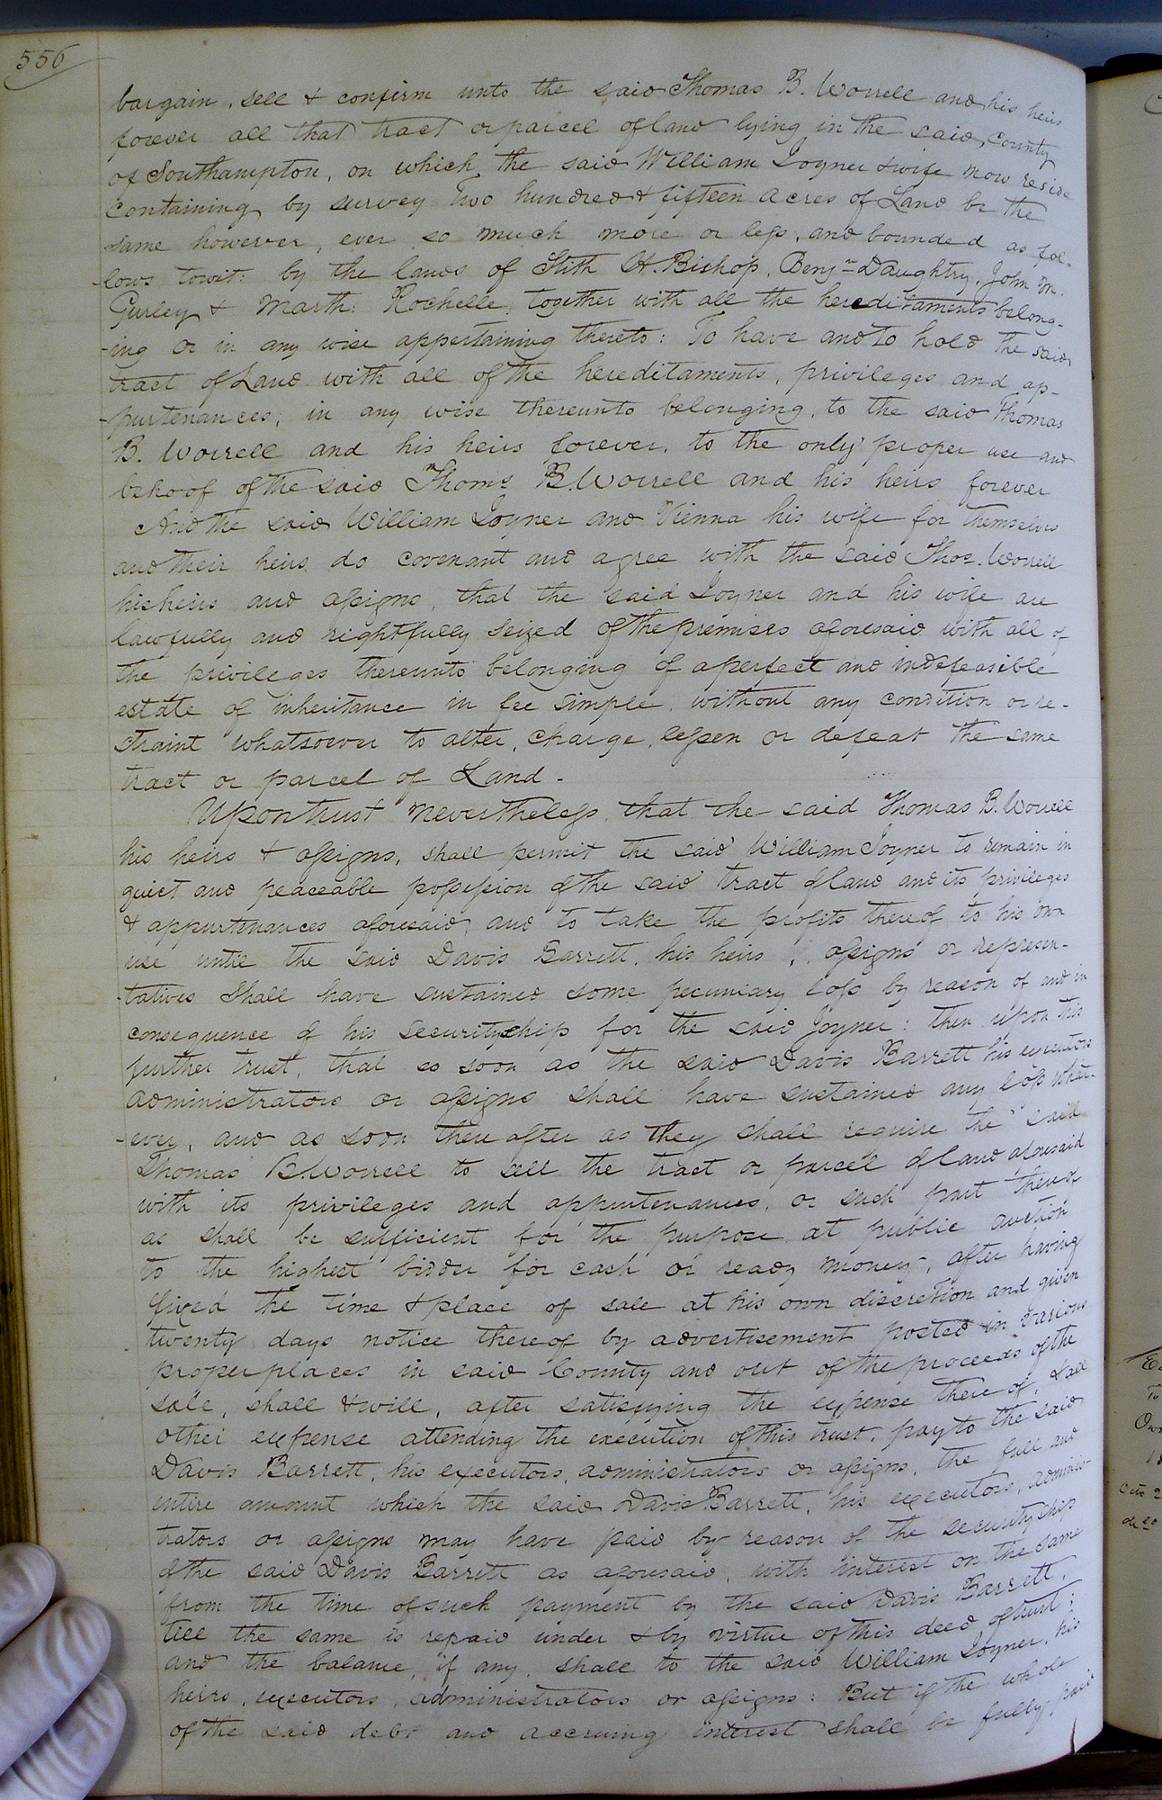 556
bargain, sell & confirm unto the said Thomas B. Worrell and his heirs
forever all that tract or parcel of land lying in the said County
of Southampton, on which the said William Joyner & wife now reside
containing by survey two hundred & fifteen acres of Land be the
same however, ever so much more or less, and bounded as fol-
-lows towit: by the lands of Stith H. Bishop, Benjn Daughtry, John M.
Gurley & Marth: Rochelle, together with all the hereditaments belong-
-ing or in any wise appertaining thereto: To have and to hold the said
tract of Land with all of the hereditaments, privileges and ap-
-purtenances, in any wise thereunto belonging, to the said Thomas
B. Worrell and his heirs forever, to the only proper use and
behoof of the said Thoms B. Worrell and his heirs forever
And the said William Joyner and Vienna his wife for themselves
and their heirs do covenant and agree with the said Thos. Worrell
his heirs and assigns, that the said Joyner and his wife are
lawfully and rightfully seized of the premises aforesaid with all of
the privileges thereunto belonging of a perfect and indefeasible
estate of inheritance in fee simple, without any condition or re-
straint whatsoever to alter, charge, lessen or defeat the same
tract or parcel of Land.
Upon trust nevertheless, that the said Thomas B. Worrell
his heirs & assigns, shall permit the said William Joyner to remain in
quiet and peaceable possession of the said tract of land and its privileges
& appurtenances aforesaid, and to take the profits thereof to his own
use until the said Davis Barrett, his heirs, assigns or represen-
-tatives shall have sustained some pecuniary loss by reason of and in
consequence of his securityship for the said Joyner: then upon this
further trust, that as soon as the said Davis Barrett his executors
administrators or assigns shall have sustained any loss what-
-ever, and as soon there after as they shall require the said
Thomas B. Worrell to sell the tract or parcel of land aforesaid
with its privileges and appurtenances, or such part thereof
as shall be sufficient for the purpose at public auction
to the highest bidder for cash or ready money, after having
fixed the time & place of sale at his own discretion and given
twenty days notice thereof by advertisement posted in various
proper places in said County and out of the proceeds of the
sale, shall & will, after satisfying the expense thereof, & all
other expense attending the execution of this trust, pay to the said
Davis Barrett, his executors, administrators or assigns, the full and
entire amount which the said Davis Barrett, his executors, adminis-
trators or assigns may have paid by reason of the securityship
of the said Davis Barrett as aforesaid, with interest on the same
from the time of such payment by the said Davis Barrett,
till the same is repaid under & by virtue of this deed of trust;
and the balance, if any, shall to the said William Joyner, his
heirs, executors, administrators or assigns: But if the whole
of the said debt and accruing interest shall be fully paid